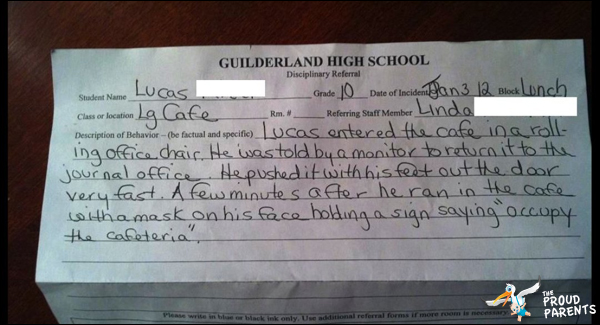 GUILDERLAND HIGH SCHOOL
Disciplinary Referral
Student Name Lucas Grade 10 Date of Incident Jan 3 12 Block Lunch
Class or location Lg Cafe Rm. # Referring Staff Member Linda
Description of Behavior – (be factual and specific) Lucas entered the cafe in a roll-
ing office chair. He was told by a monitor to return it to the
journal office. He pushed it with his feet out the door
very fast. A few minutes after he ran in the cafe
with a mask on his face holding a sign saying "occupy
the cafeteria".
Please write in blue or black ink only. Use additional referral forms if more room is necessary
THE
PROUD
PARENTS